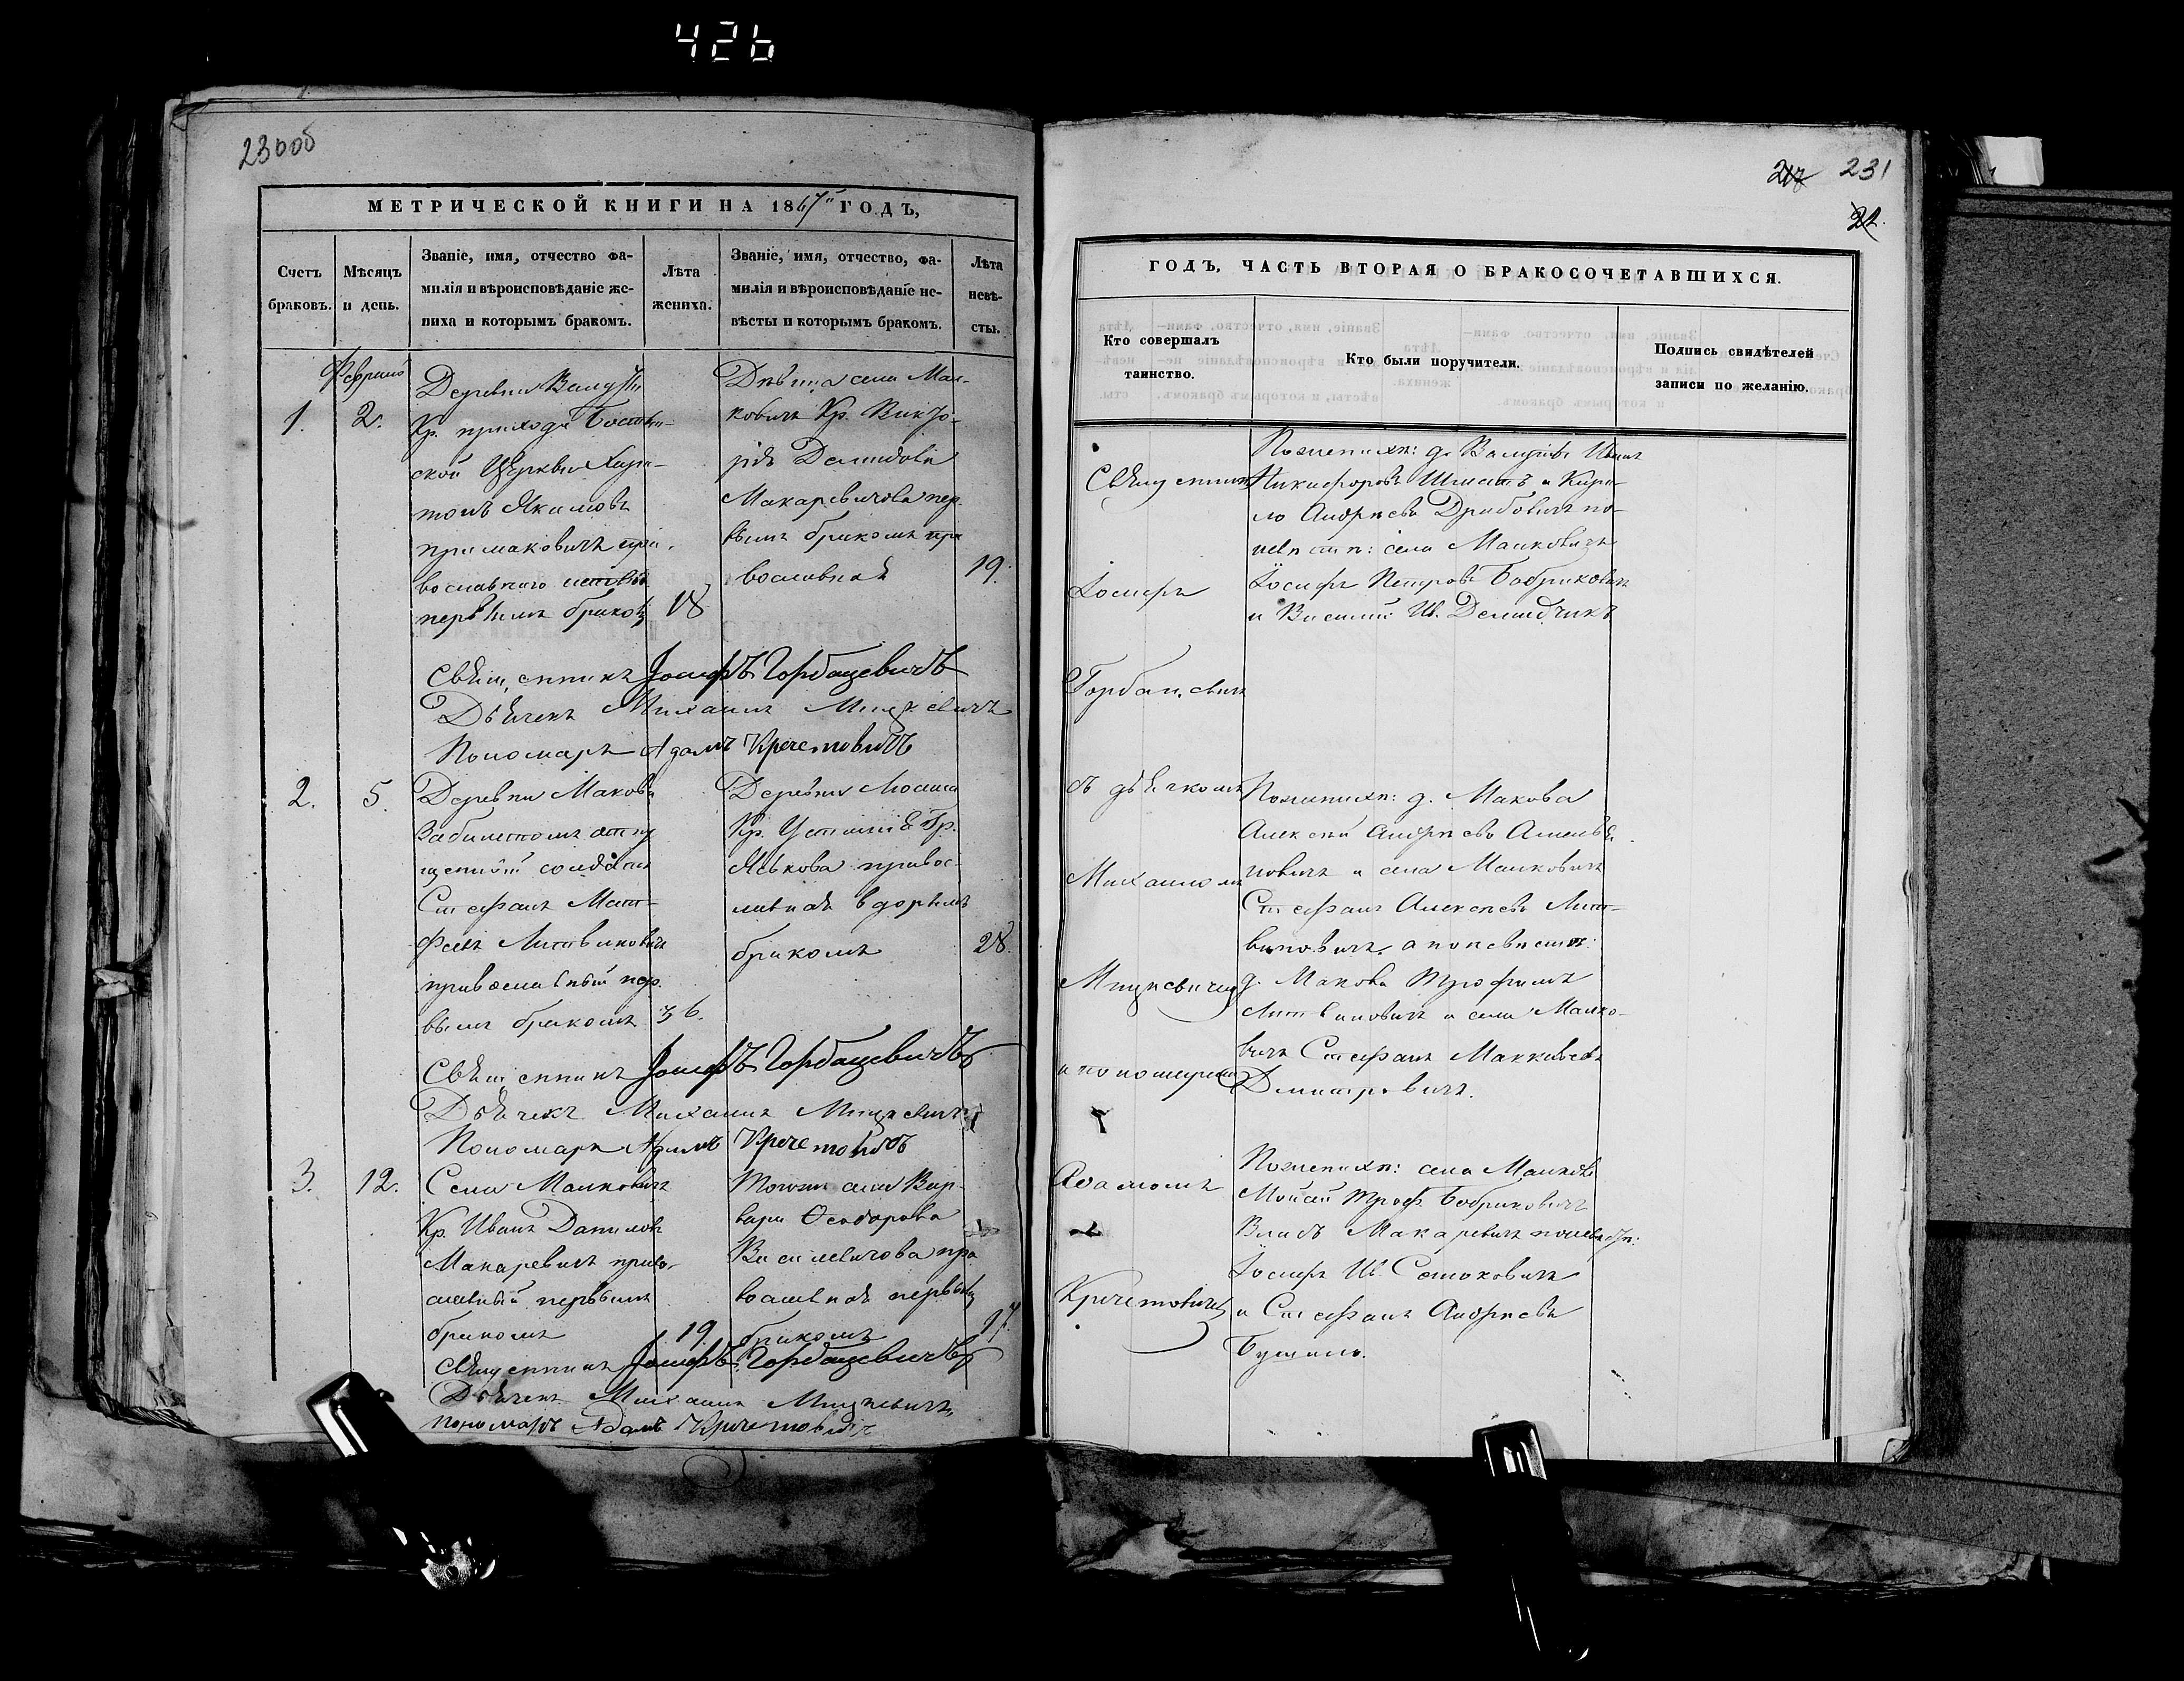 426
230об
МЕТРИЧЕСКОЙ КНИГИ НА 1867 ГОДЪ,
Счетъ браковъ.
Мѣсяцъ и день.
Званіе, имя, отчество фа-
милія и вѣроисповѣданіе же-
ниха и которымъ бракомъ.
Лѣта жениха.
Званіе, имя, отчество, фа-
милія и вѣроисповѣданіе не-
вѣсты и которымъ бракомъ.
Лѣта невѣ-
сты.
1.
2.
Деревни
Кр. прихода
ской Церкви Хари-
тонъ Якимовъ
Примаковичъ пра-
вославнаго
первымъ
18
Дѣвица села Мал-
ковичъ Кр. Викто-
рія Демидова
Макаревичова пер-
вымъ бракомъ пра
вославная
19.
Священникъ Іосифъ Горбацевичъ
Дьячекъ Михаилъ Мицкевичъ
Пономарь Адамъ Кречетовичъ
2.
5.
Деревни Макова
За билетомъ отпу
щенный солдатъ
Стефанъ Мат-
Литвиновичъ
православный пер-
вымъ бракомъ
36.
Деревни
Кр. Гр.
Яськова правос-
лавная вторымъ
бракомъ
28.
Священникъ Іосифъ Горбацевичъ
Дьячекъ Михаилъ Мицкевичъ
Пономарь Адамъ Кречетовичъ
3.
12.
Села Малковичъ
Кр. Иванъ Даниловъ
Макаревичъ право-
славный первымъ
бракомъ
19.
Тогожъ села Вар-
вара Ѳеодорова
Василевичова пра
вославная первымъ
бракомъ
17.
Священникъ Іосифъ Горбацевичъ
Дьячекъ Михаилъ Мицкевичъ
пономарь Адамъ Кречетовичъ
231
ГОДЪ, ЧАСТЬ ВТОРАЯ О БРАКОСОЧЕТАВШИХСЯ.
Кто совершалъ
таинство.
Кто были поручители.
Подпись свидѣтелей
записи по желанію.
Священникъ
Іосифъ
Горбацевичъ
съ дьячкомъ
Михаиломъ
Мицкевичемъ
и пономаремъ
Адамомъ
Кречетовичемъ
По женихѣ: д. Иванъ
Никифоровъ и Кири-
ло Андреевъ по
невѣстѣ: села Малковичъ
Іосифъ Петровъ Бобриковичъ
и Василій Ив. Демидчикъ
По женихѣ: д. Макова
Алексѣй Андреевъ
новичъ и села Малковичъ
Стефанъ Алексѣевъ Лит-
виновичъ, а по невѣстѣ:
д. Макова Трофимъ
Литвиновичъ и села Малко-
вичъ Стефанъ
Дмитровичъ.
По женихѣ: села
Моисей Троф. Бобриковичъ
Макаревичъ по невѣстѣ:
Іосифъ Ив.
и Стефанъ Андреевъ